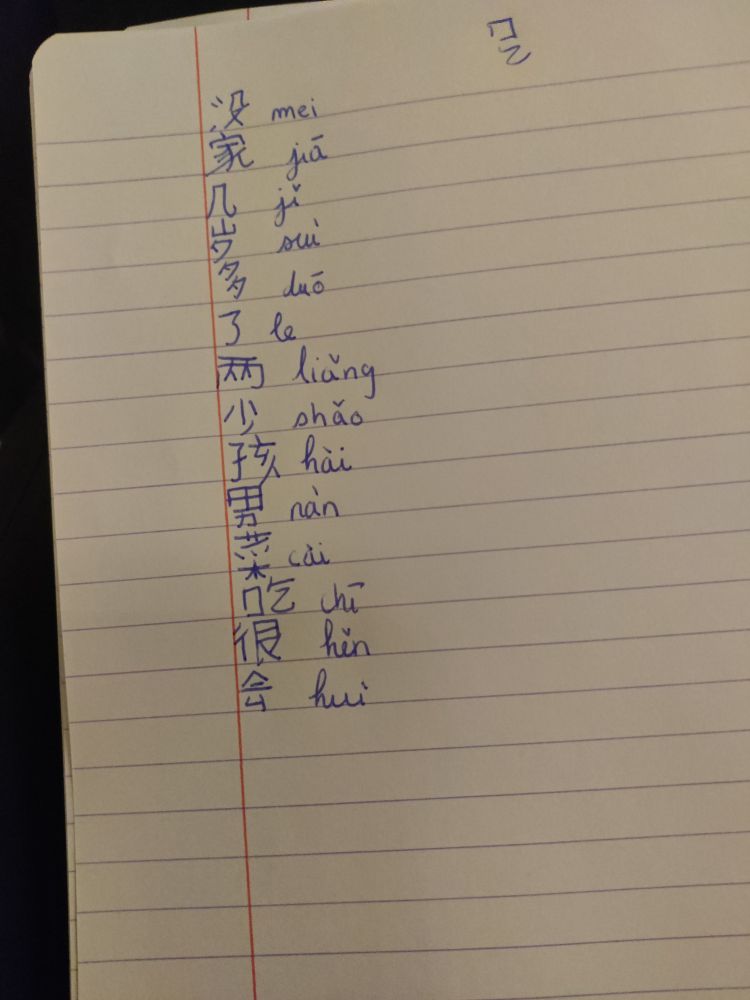 没 mei
家 jiā
几 jǐ
岁 suì
多 duō
了 le
两 liǎng
少 shǎo
孩 hài
男 nàn
菜 cài
吃 chī
很 hěn
会 huì